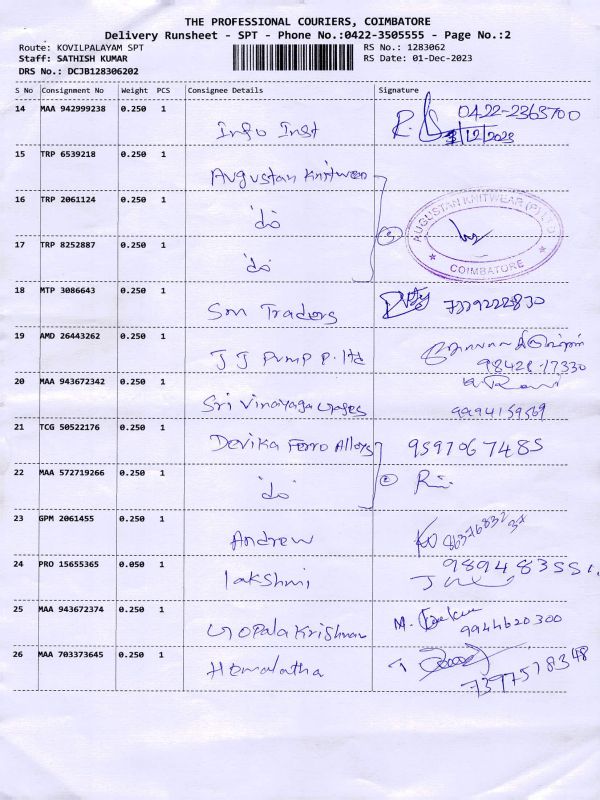 THE PROFESSIONAL COURIERS, COIMBATORE
Delivery Runsheet - SPT - Phone No.:0422-3505555 - Page No.:2
Route: KOVILPALAYAM SPT
Staff: SATHISH KUMAR
DRS No.: DCJB128306202
RS No.: 1283062
RS Date: 01-Dec-2023
S No Consignment No Weight PCS Consignee Details Signature
14 MAA 942999238 0.250 1 Info Inst 0422-2363700
1/12/2023
15 TRP 6539218 0.250 1 Augustan Knitwear
16 TRP 2061124 0.250 1 'do'
17 TRP 8252887 0.250 1 'do'
AUGUSTAN KNITWEAR (P) LTD
COIMBATORE
18 MTP 3086643 0.250 1 Sm Traders 7339222830
19 AMD 26443262 0.250 1 J J Pump P. ltd
98428 17330
20 MAA 943672342 0.250 1 Sri Vinayaga
9994159569
21 TCG 50522176 0.250 1 Devika Ferro Alloys 9597067485
22 MAA 572719266 0.250 1 'do' 2
23 GPM 2061455 0.250 1 Andrew 8637683237
24 PRO 15655365 0.050 1 lakshmi
25 MAA 943672374 0.250 1 Gopala Krishnan M.
9944620300
26 MAA 703373645 0.250 1 Hemalatha
7397578348